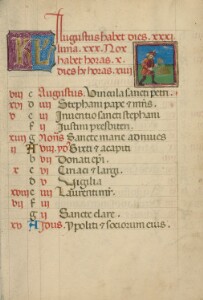 Augustus habet dies. xxxi
luna. xxx. Nox
habet horas. x
dies ħe horas. xiiii
KL
viii c Augustus. Vincula sancti petri.
xvi d iiii Stephani pape et
v e iii Inventio sancti stephani
f ii Justini presbiteri
xiii g Nons Sancte marie ad nives
ii A viii yd Sixti et
b vii Donati epi.
x c vi Ciriaci et largi
d v Vigilia
xviii e iiii Laurentii
vii f iii
g ii Sancte clare.
xv A Jdus. Ypoliti et sociorum eius.